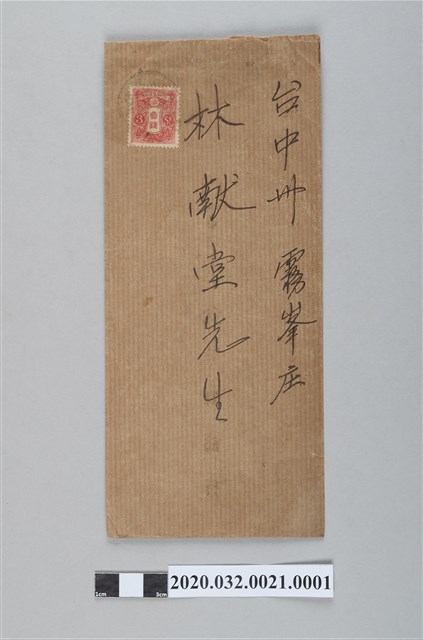 台中州霧峯庄
林献堂先生
3 3
1cm 5cm
2020.032.0021.0001